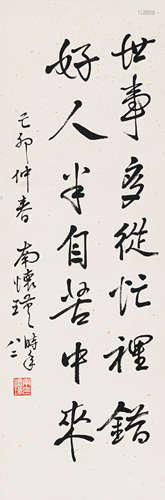 世事多從忙裡錯
好人半自苦中來
己卯仲春
南懷瑾
時年八二